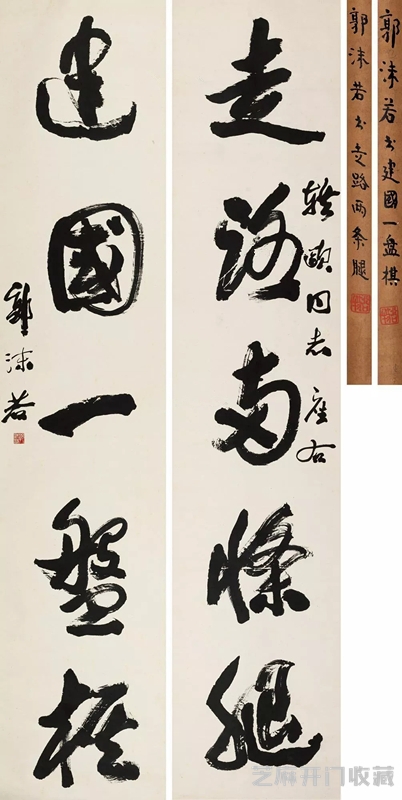 郭沫若书建國一盘棋
郭沫若书走路两条腿
同志座右
走路两條腿
建國一盤棋
郭沫若
芝麻开门收藏